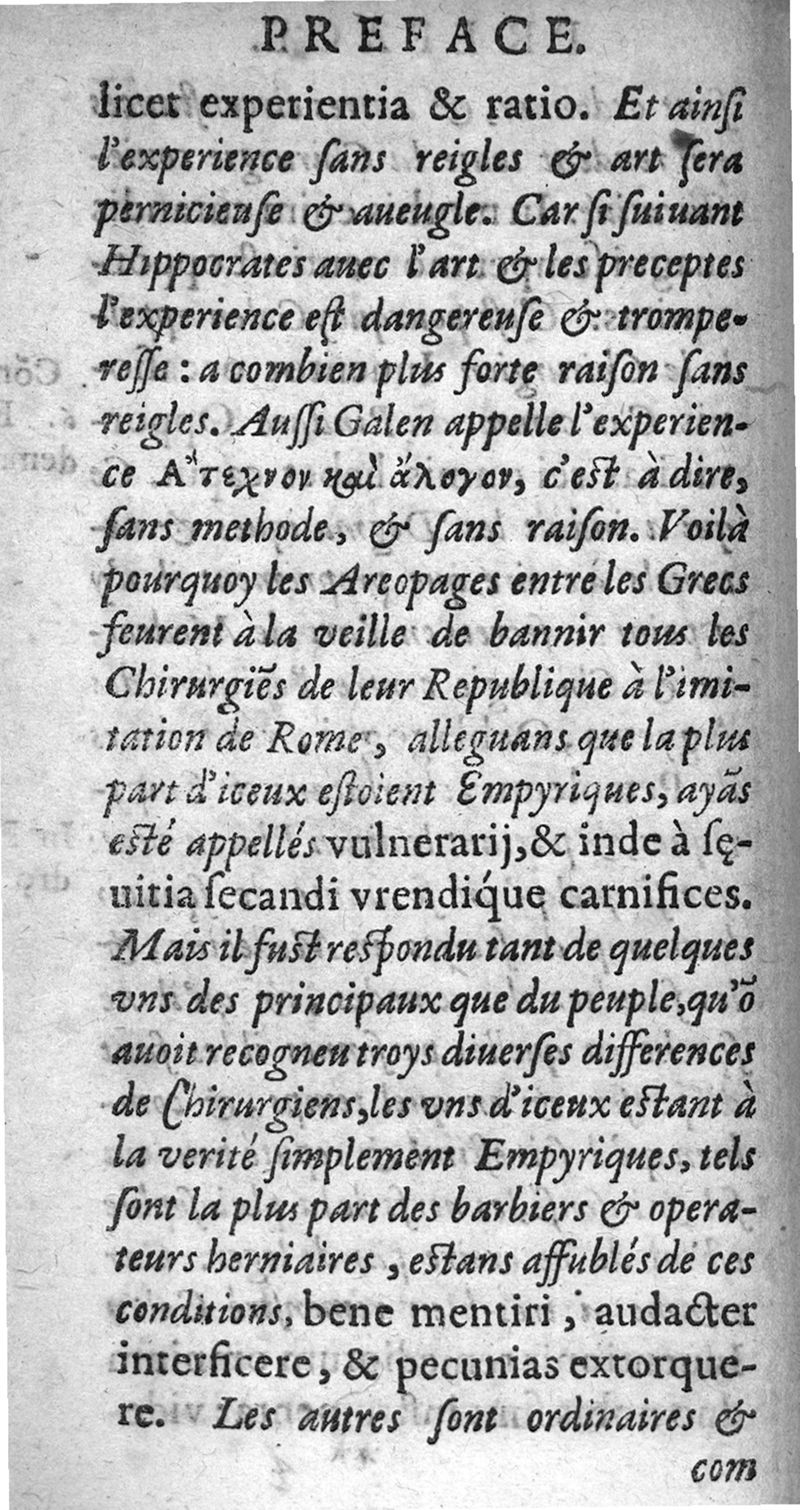 PREFACE.
licet experientia & ratio. Et ainſi
l'experience ſans reigles & art ſera
pernicieuſe & aueugle. Car ſi ſuiuant
Hippocrates auec l'art & les preceptes
l'experience eſt dangereuſe & trompe-
reſſe : a combien plus forte raiſon ſans
reigles. Auſſi Galen appelle l'experien-
ce Α῎τεχνον καὶ ἄλογον, c'eſt à dire,
ſans methode, & ſans raiſon. Voilà
pourquoy les Areopages entre les Grecs
feurent à la veille de bannir tous les
Chirurgiẽs de leur Republique à l'imi-
tation de Rome, alleguans que la plus
part d'iceux eſtoient Empyriques, ayãs
eſté appellés vulnerarij, & inde à ſę-
uitia ſecandi vrendíque carnifices.
Mais il fuſt reſpondu tant de quelques
vns des principaux que du peuple, qu'õ
auoit recogneu troys diuerſes differences
de Chirurgiens, les vns d'iceux eſtant à
la verité ſimplement Empyriques, tels
ſont la plus part des barbiers & opera-
teurs herniaires, eſtans affublés de ces
conditions, bene mentiri, audacter
interficere, & pecunias extorque-
re. Les autres ſont ordinaires &
com